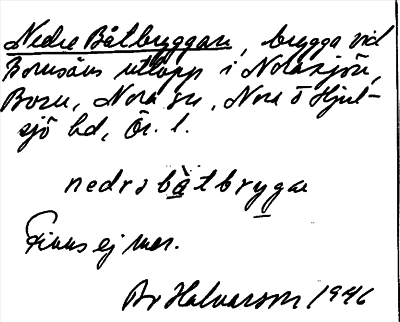 Nedre Båtbryggan, brygga vid
Borsåns utlopp i Norasjön,
Boren, Nora sn, Nora o Hjul-
sjö bd, Ör. l.
nedrabåtbryggan
Finns ej mer.
Br Halvarson 1946